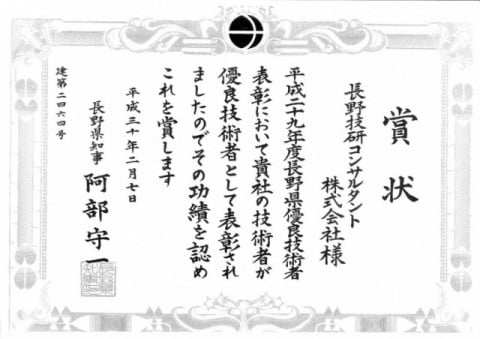 賞状
長野技研コンサルタント
株式会社様
平成二十九年度長野県優良技術者
表彰において貴社の技術者が
優良技術者として表彰され
ましたのでその功績を認め
これを賞します
平成三十年二月七日
長野県知事 阿部守一
建第二四六四号